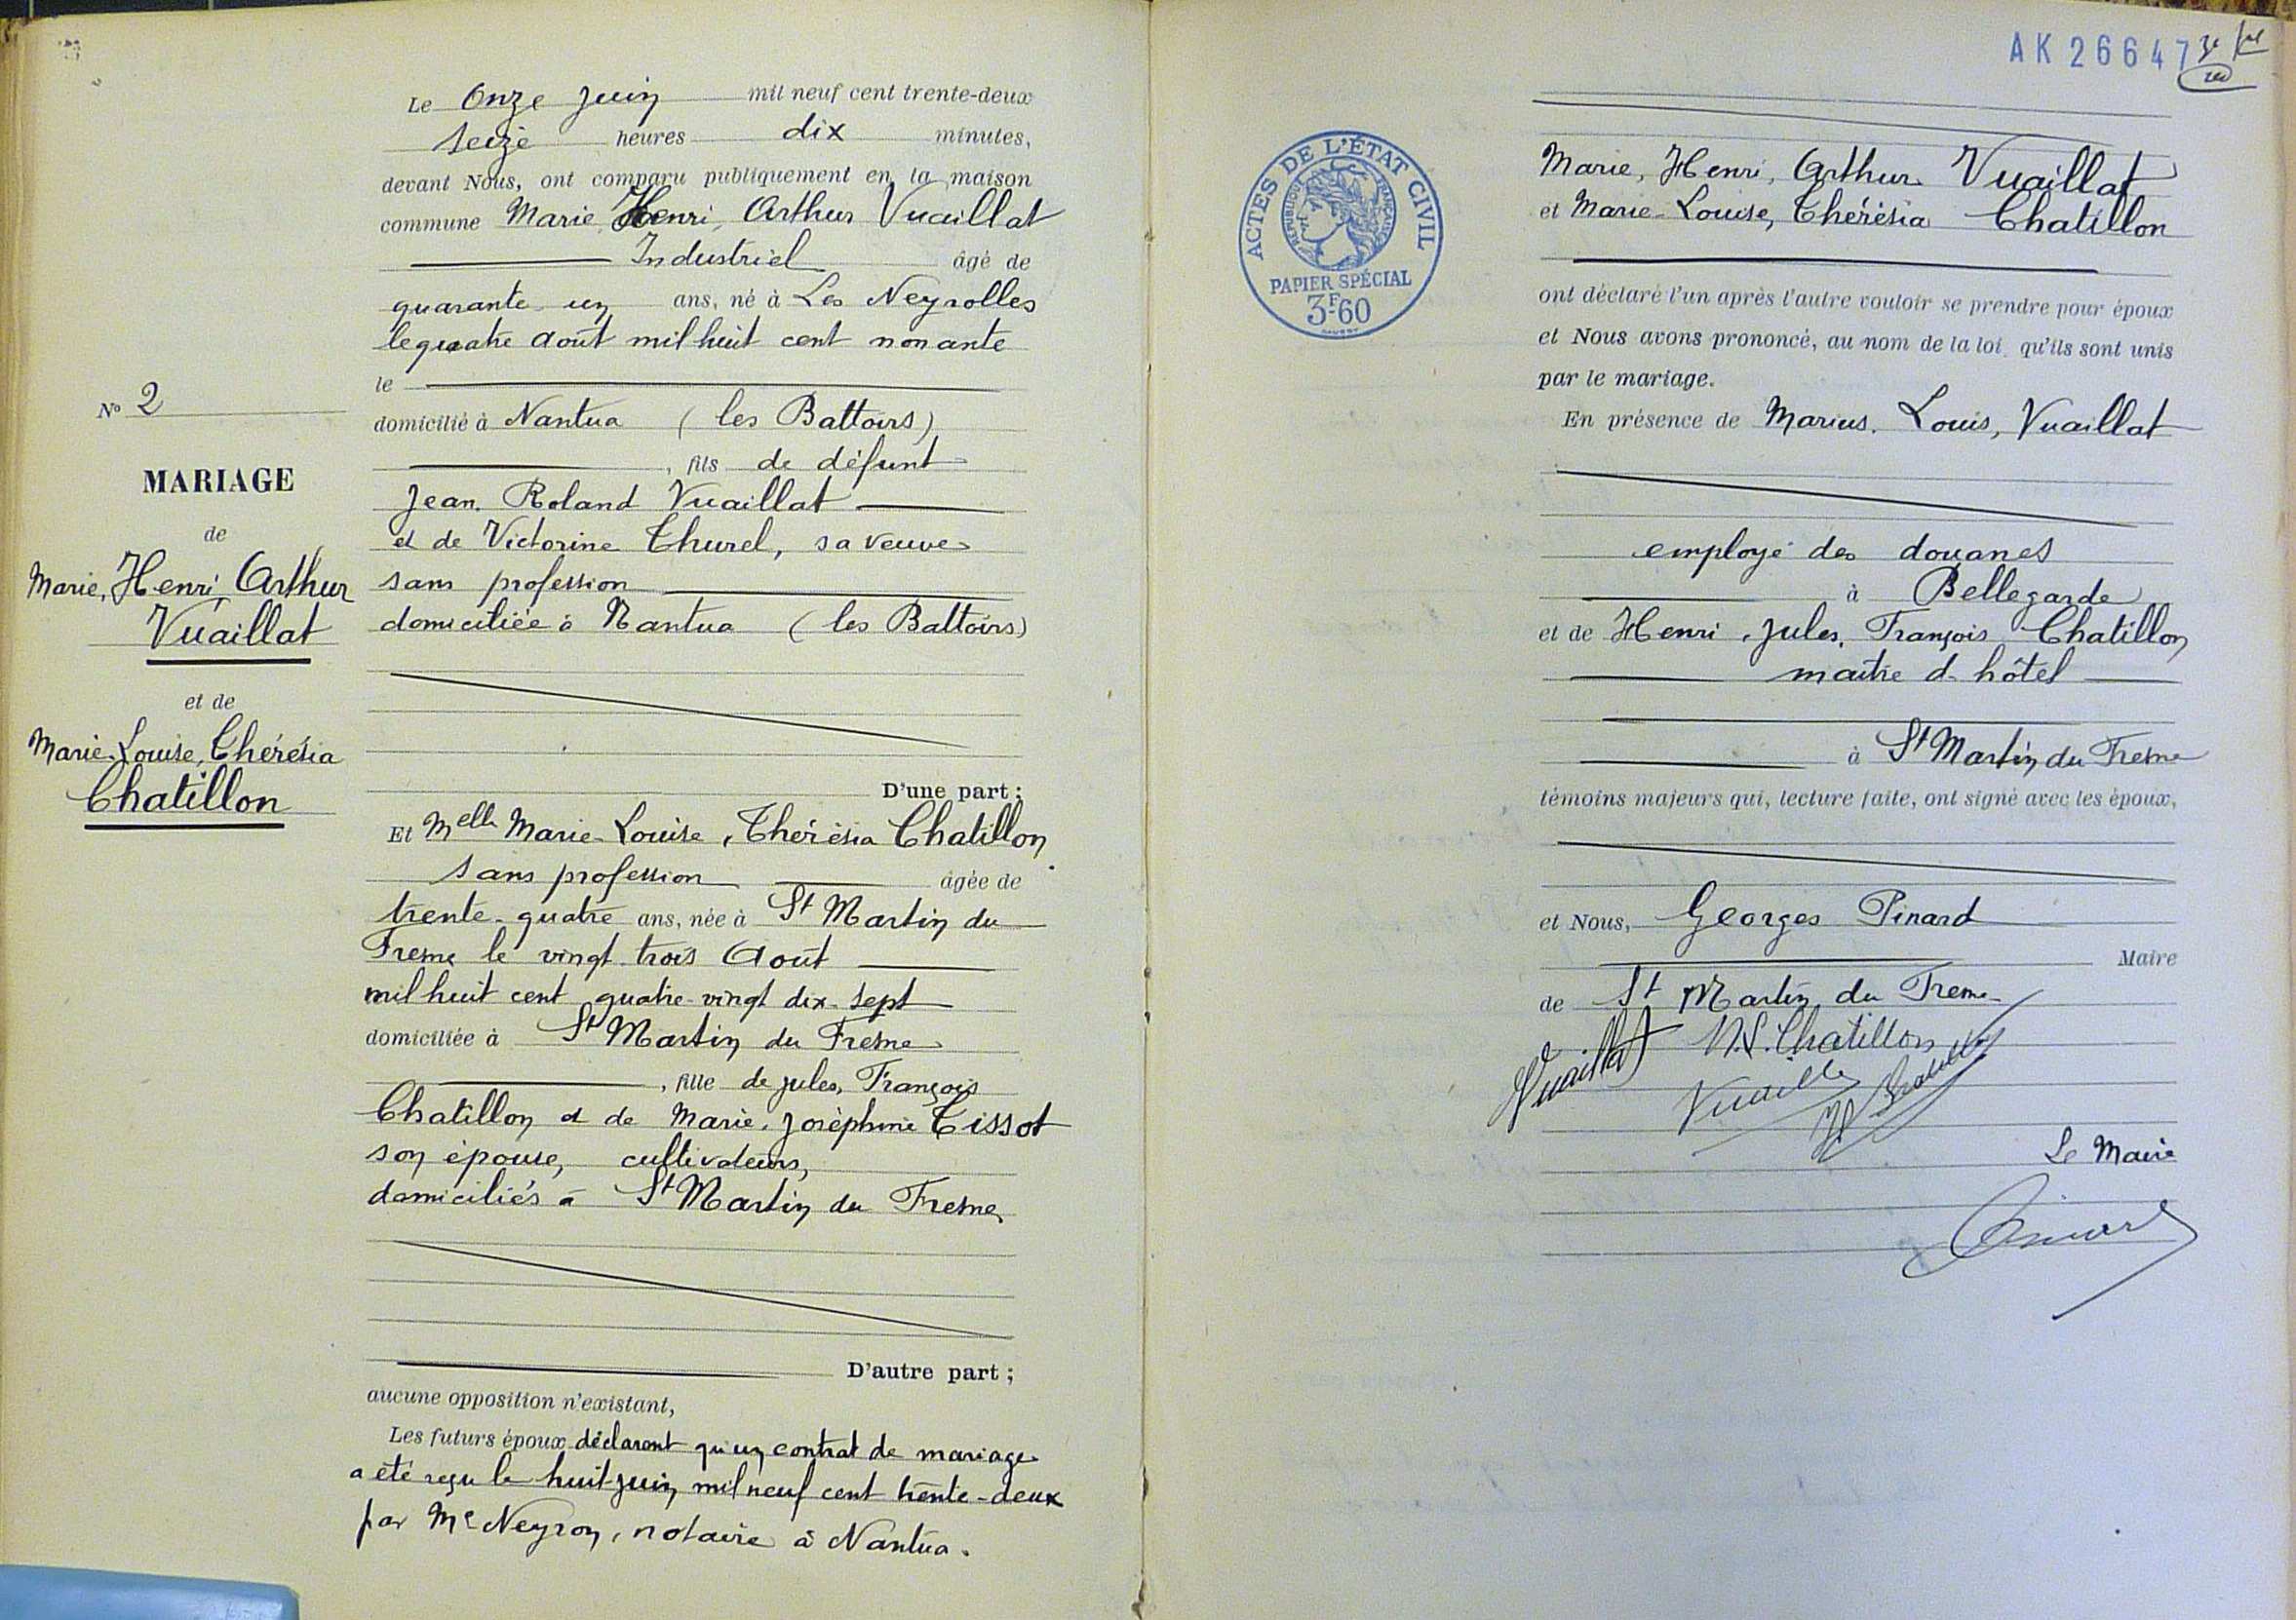 N° 2
MARIAGE
de
Marie, Henri, Arthur
Vuaillat
et de
Marie-Louise, Thérésia
Chatillon
Le Onze Juin mil neuf cent trente-deux
seize heures dix minutes,
devant Nous, ont comparu publiquement en la maison
commune Marie, Henri, Arthur Vuaillat
Industriel âgé de
quarante un ans, né à Les Neyrolles
le quatre août mil huit cent nonante
le
domicilié à Nantua (les Battoirs)
, fils de défunt
Jean, Roland Vuaillat
et de Victorine Thurel, sa veuve
sans profession
domiciliée à Nantua (les Battoirs)
D'une part ;
Et Melle Marie-Louise, Thérèsia Chatillon
sans profession âgée de
trente-quatre ans, née à St Martin du
Fresne le vingt-trois Août
mil huit cent quatre-vingt dix-sept
domiciliée à St Martin du Fresne
, fille de Jules, François
Chatillon et de Marie, Joséphine Tissot
son épouse, cultivateurs,
domiciliés à St Martin du Fresne
D'autre part ;
aucune opposition n'existant,
Les futurs époux déclarent qu'un contrat de mariage
a été reçu le huit juin, mil neuf cent trente-deux
par Me Neyron, notaire à Nantua.
AK 26647
ACTES DE L'ÉTAT CIVIL
RÉPUBLIQUE FRANÇAISE
PAPIER SPÉCIAL
3F.60
Marie, Henri, Arthur Vuaillat
et Marie-Louise, Thérésia Chatillon
ont déclaré l'un après l'autre vouloir se prendre pour époux
et Nous avons prononcé, au nom de la loi, qu'ils sont unis
par le mariage.
En présence de Marius, Louis, Vuaillat
employé des douanes
à Bellegarde
et de Henri, Jules, François Chatillon
maître d'hôtel
à St Martin du Fresne
témoins majeurs qui, lecture faite, ont signé avec les époux,
et Nous, Georges Pinard
Maire
de St Martin du Fresne
Vuaillat M.L. Chatillon
Vuaillat
Le Maire
Pinard